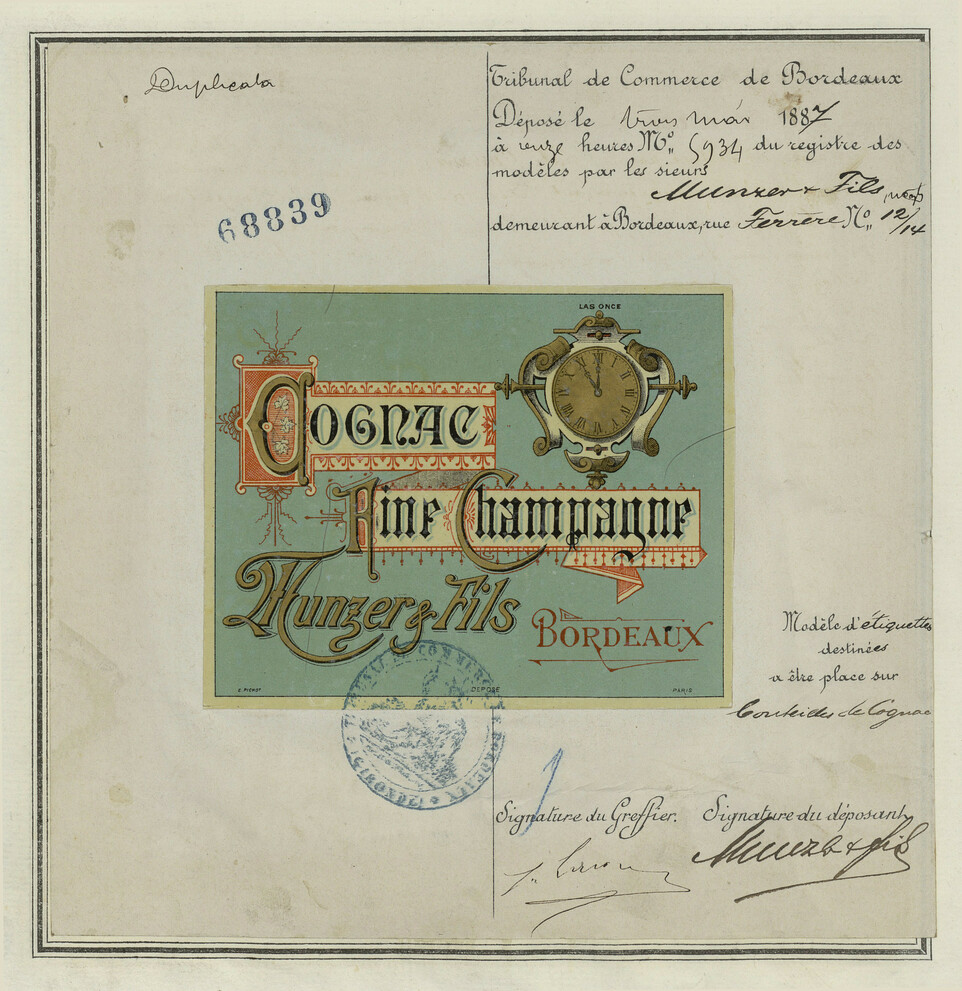 Duplicata
Tribunal de Commerce de Bordeaux
Déposé le trois mai 1887
à onze heures Mo. 5934 du registre des
modèles par les sieurs
Munzer & Fils,
demeurant à Bordeaux, rue Ferrère No. 12/14
68839
LAS ONCE
COGNAC
Fine Champagne
Munzer & Fils
BORDEAUX
E. PICHOT
DÉPOSÉ
PARIS
TRIBUNAL DE COMMERCE DE BORDEAUX
Modèle d'étiquettes
destinées
a être place sur
bouteilles de Cognac
Signature du Greffier. Signature du déposant
Munzer & fils